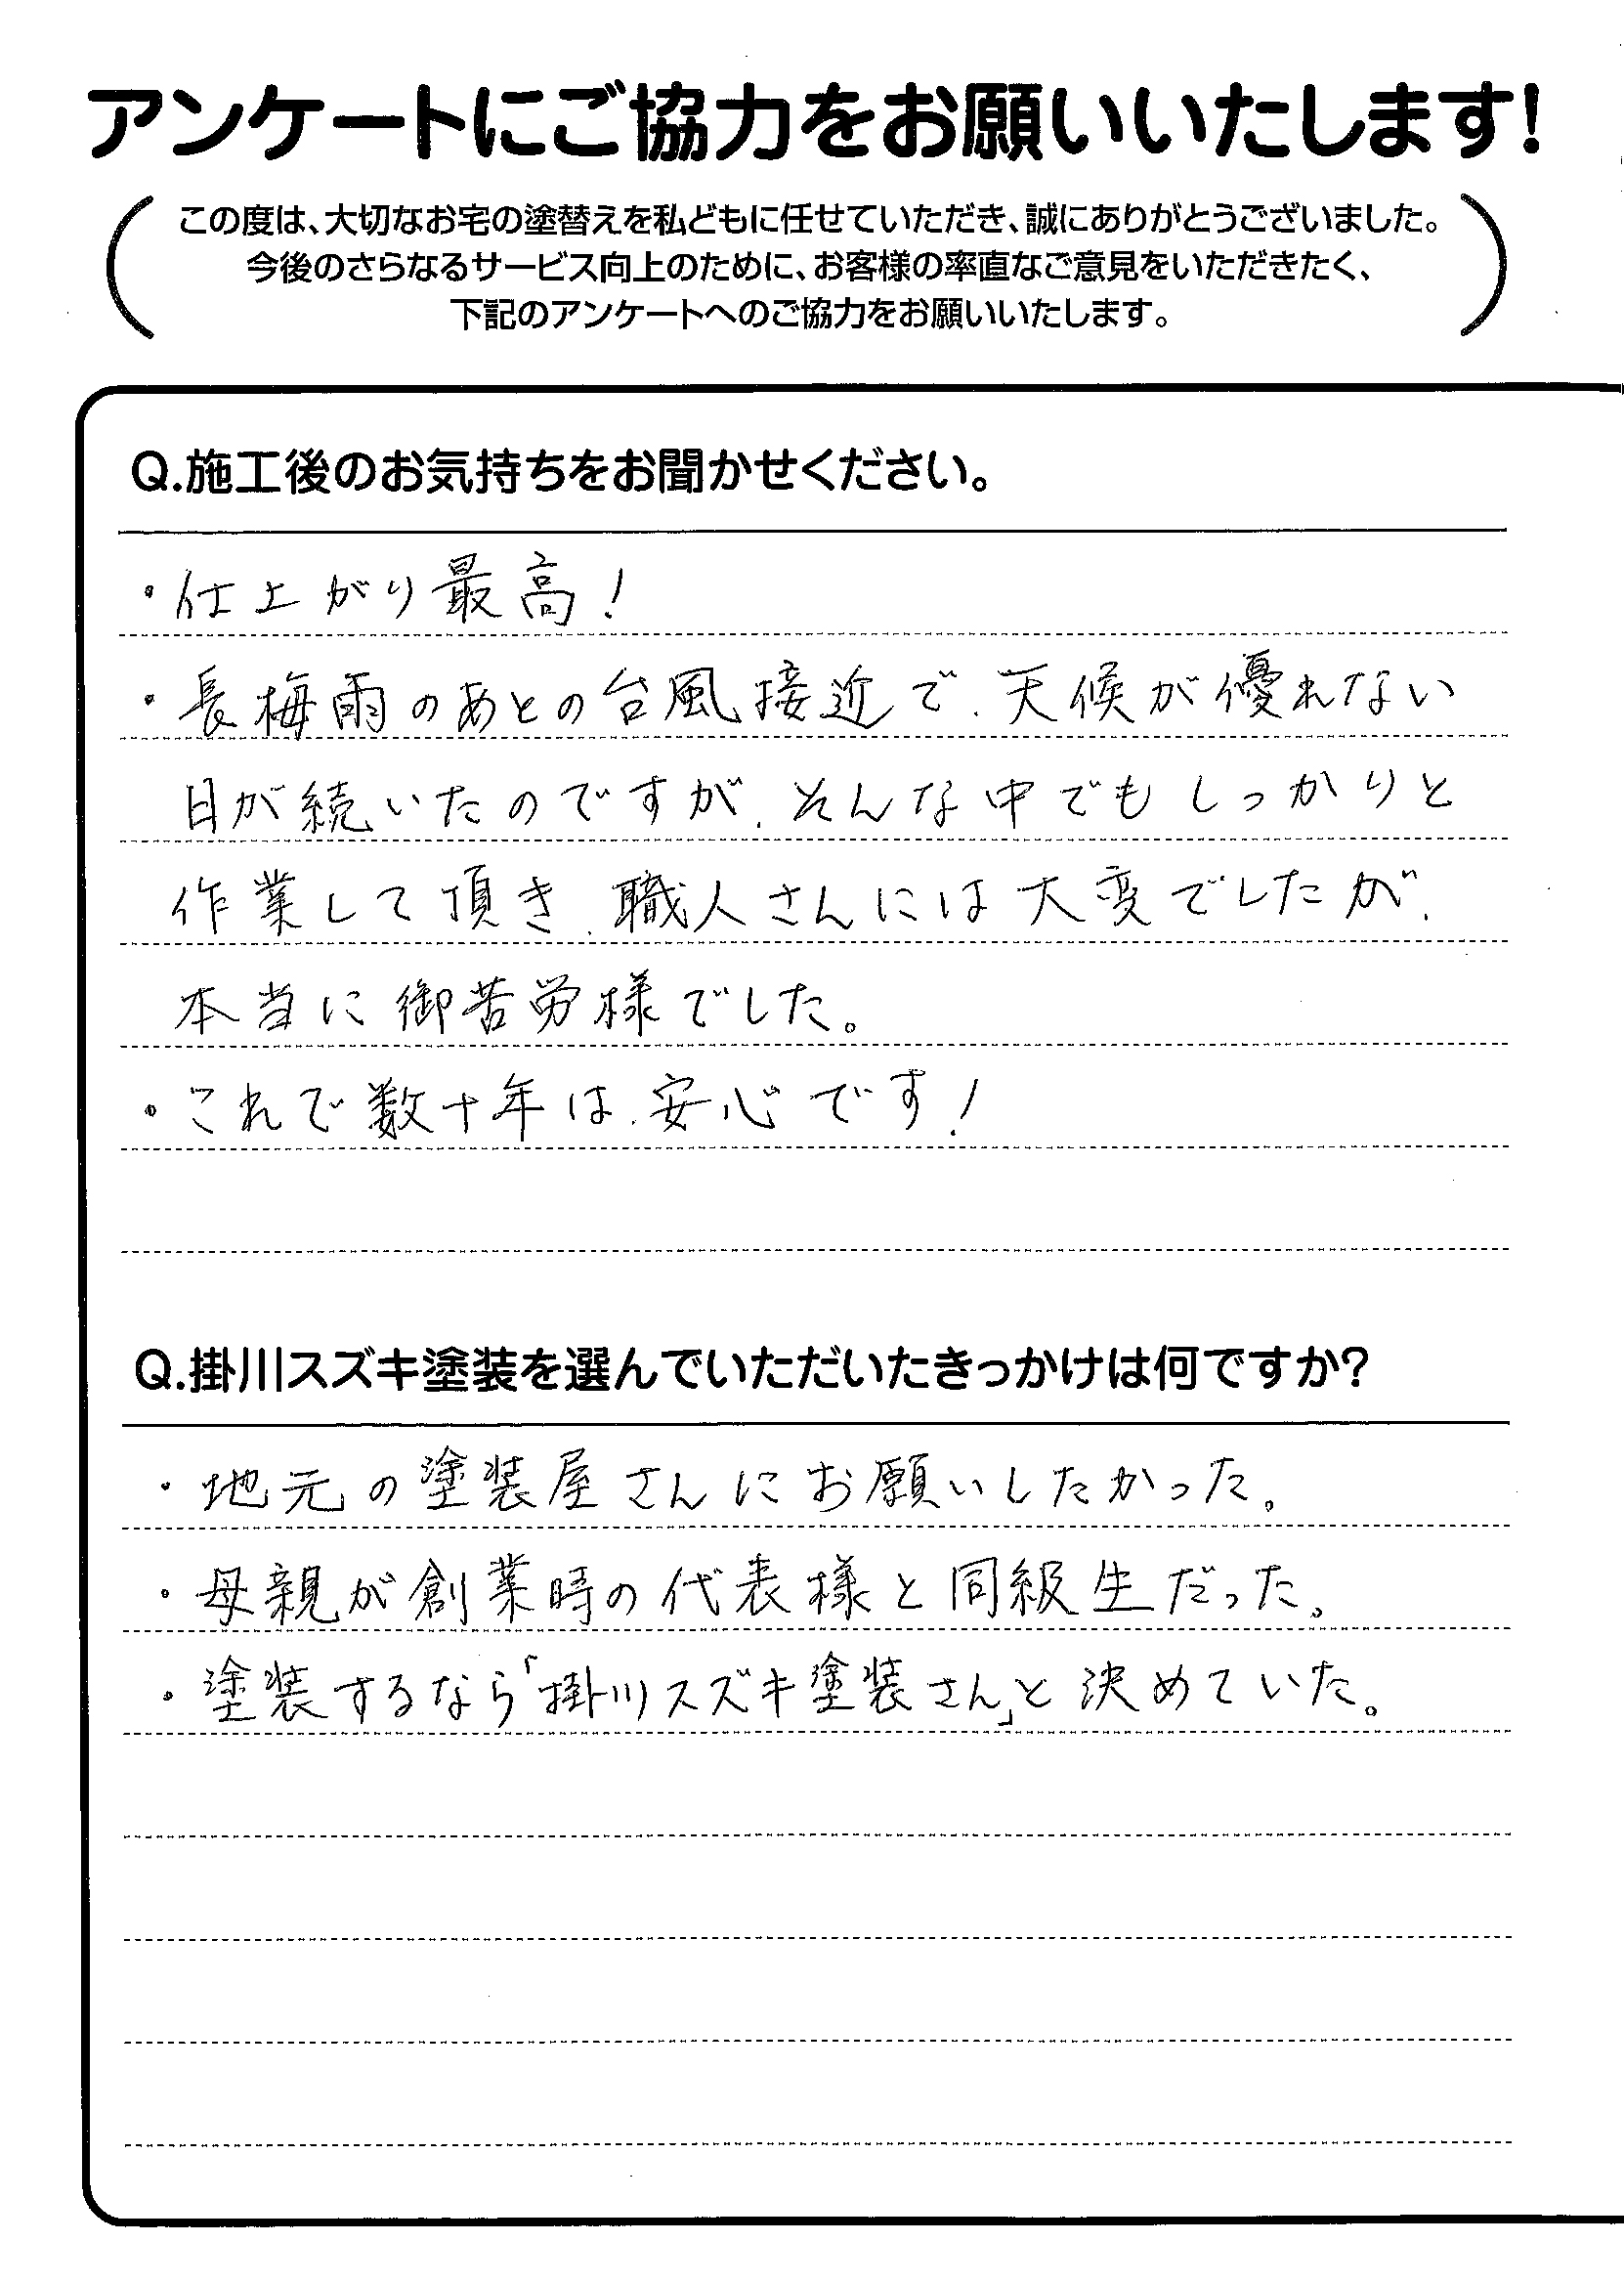 アンケートにご協力をお願いいたします!
この度は、大切なお宅の塗替えを私どもに任せていただき、誠にありがとうございました。
今後のさらなるサービス向上のために、お客様の率直なご意見をいただきたく、
下記のアンケートへのご協力をお願いいたします。
Q.施工後のお気持ちをお聞かせください。
・仕上がり最高!
・長梅雨のあとの台風接近で、天候が優れない
日が続いたのですが、そんな中でもしっかりと
作業して頂き、職人さんには大変でしたが、
本当に御苦労様でした。
・これで数十年は、安心です!
Q.掛川スズキ塗装を選んでいただいたきっかけは何ですか?
・地元の塗装屋さんにお願いしたかった。
・母親が創業時の代表様と同級生だった。
・塗装するなら「掛川スズキ塗装さん」と決めていた。